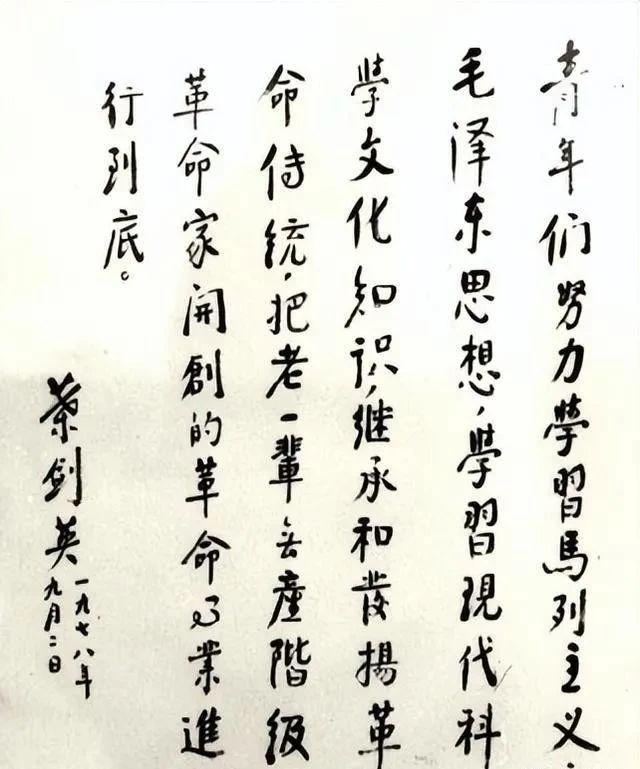 青年们努力學習馬列主义、
毛泽东思想，學習現代科
學文化知识，继承和发揚革
命传統，把老一輩无產階級
革命家開創的革命事業進
行到底。
葉剑英
一九七八年
九月二日